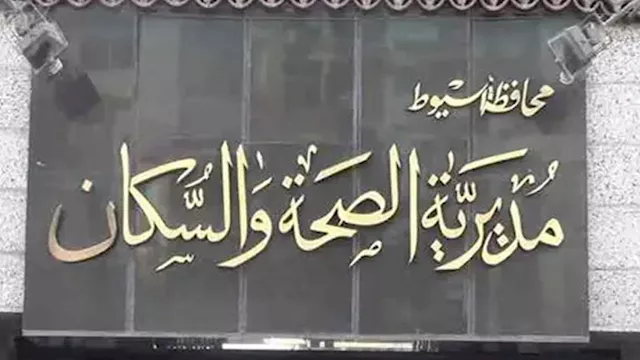 محافظة اسيوط
مُديريَّة الصحة وَالسُّكان